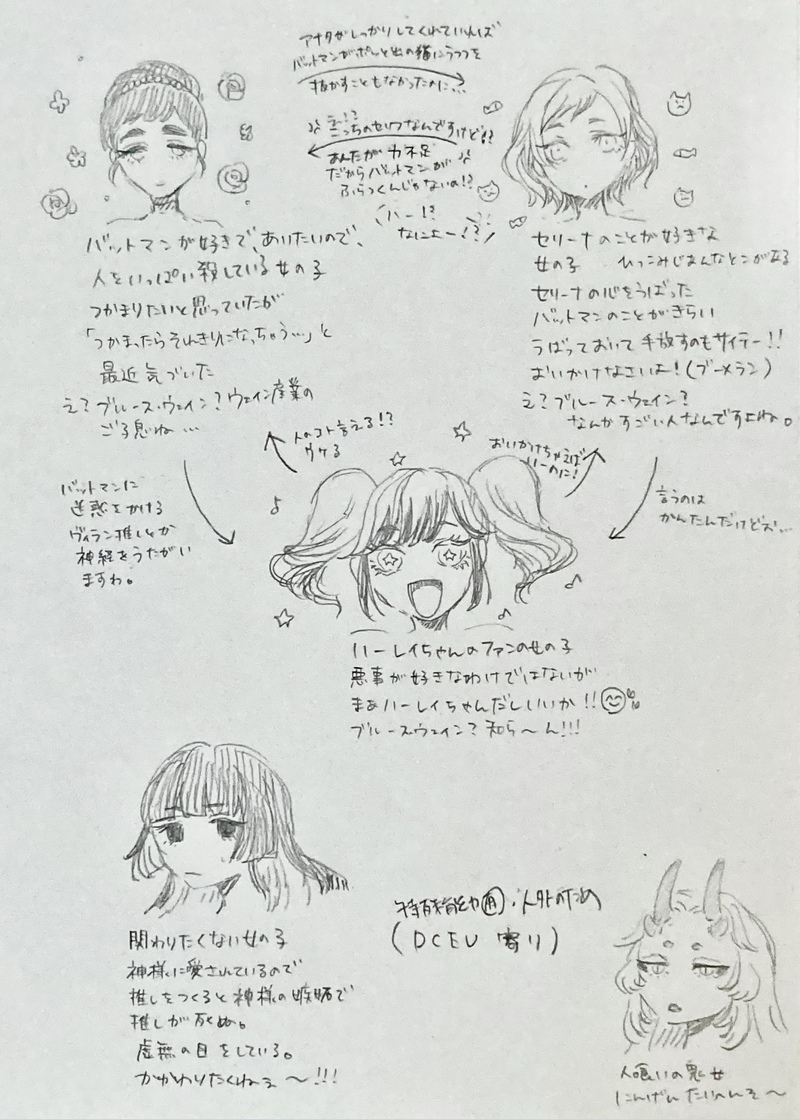 アナタがしっかりしてくれていれば
バットマンがポッと出の猫にうつつを
抜かすこともなかったのに…
え!?
こっちのセリフなんですけど!?
あんたが力不足
だからバットマンが
ふらつくんじゃないの!?
ハー!?
なによー!?
バットマンが好きで、あいたいので、
人をいっぱい殺している女の子
つかまりたいと思っていたが
「つかまったらそれきりになっちゃう…」と
最近気づいた
え?ブルース・ウェイン?ウェイン産業の
ご子息ね…
セリーナのことが好きな
女の子 ひっこみじあんなとこがある
セリーナの心をうばった
バットマンのことがきらい
うばっておいて手放すのもサイテー!!
おいかけなさいよ!(ブーメラン)
え?ブルース・ウェイン?
なんかすごい人なんですよね。
人のコト言える!?
ウケる
おいかけちゃえば
いーのに!
バットマンに
迷惑をかける
ヴィラン推しとか
神経をうたがい
ますわ。
言うのは
かんたんだけどさ…
ハーレイちゃんのファンの女の子
悪事が好きなわけではないが
まぁハーレイちゃんだしいいか!!
ブルースウェイン?知ら〜ん!!!
関わりたくない女の子
神様に愛されているので
推しをつくると神様の嫉妬で
推しが死ぬ。
虚無の目をしている。
かかわりたくねぇ〜!!!
・人外のため
(DCEU寄り)
人喰いの鬼女
にんげんたいへんそ〜